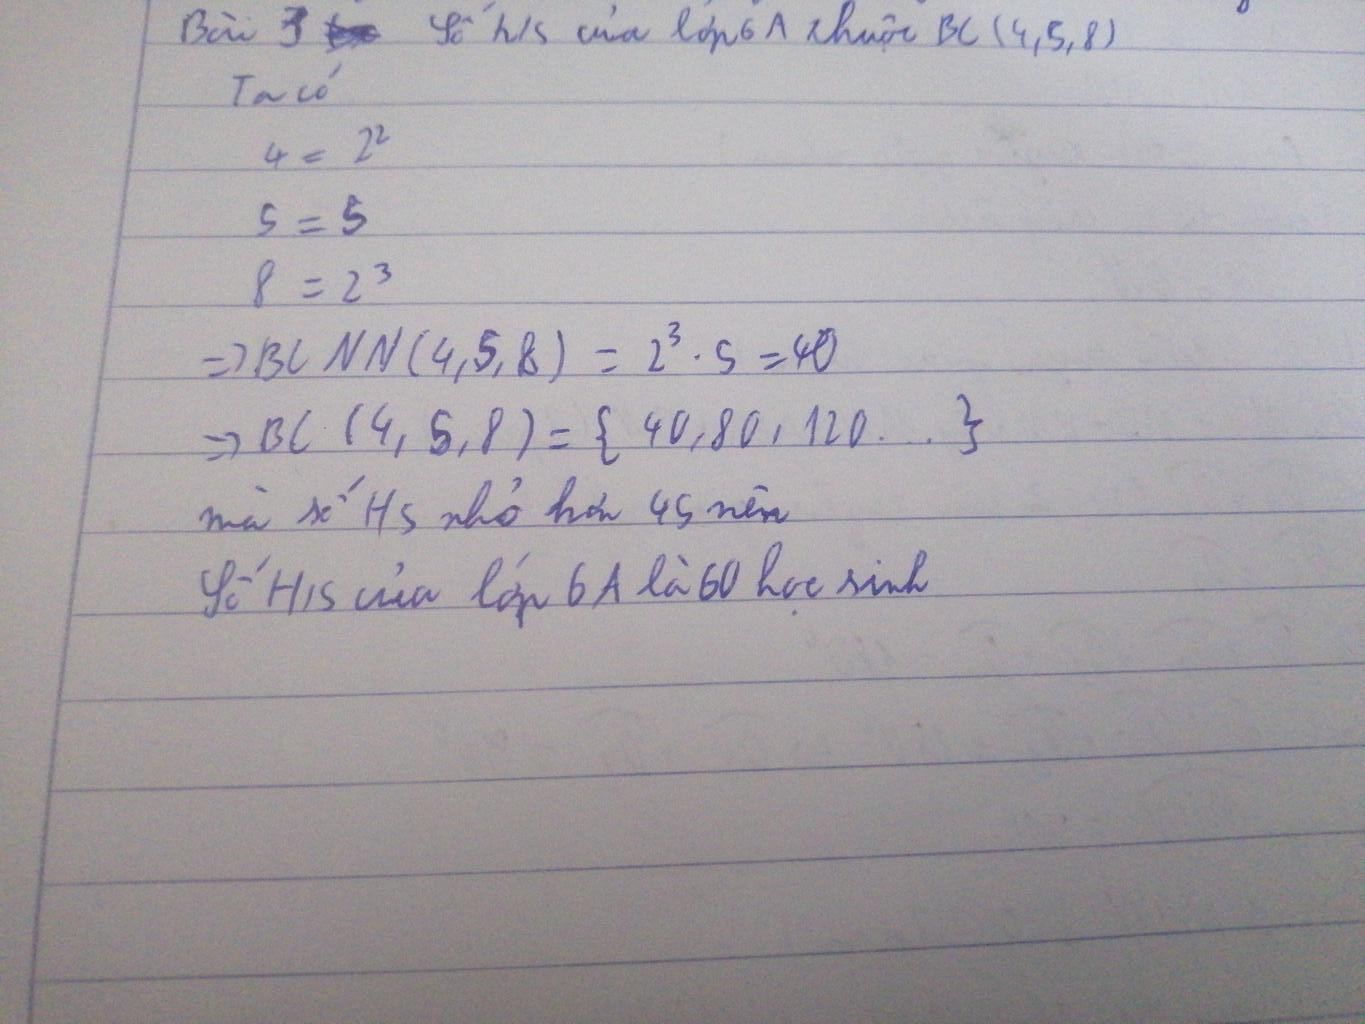 Bài 3 Số h/s của lớp 6A thuộc BC (4,5,8)
Ta có
4 = 2²
5 = 5
8 = 2³
=> BCNN(4,5,8) = 2³ . 5 = 40
=> BC (4, 5,8) = { 40,80, 120... }
mà số HS nhỏ hơn 45 nên
Số H/S của lớp 6A là 60 học sinh